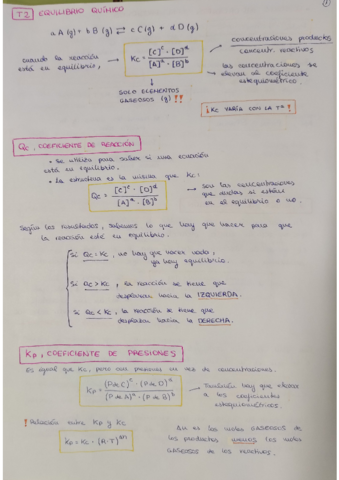 T2 EQUILIBRIO QUÍMICO
1
a A (g) + b B (g) ⇌ c C (g) + d D (g)
cuando la reacción
está en equilibrio,
Kc = [C]^c · [D]^d / [A]^a · [B]^b
concentraciones productos
concentr. reactivos
las concentraciones se
elevan al coeficiente
estequiométrico
SOLO ELEMENTOS
GASEOSOS (g) !!
¡ Kc VARÍA CON LA Tª !
Qc, COEFICIENTE DE REACCIÓN
• Se utiliza para saber si una ecuación
está en equilibrio.
• La estructura es la misma que Kc:
Qc = [C]^c · [D]^d / [A]^a · [B]^b
son las concentraciones
que dudas si están
en el equilibrio o no.
Según los resultados, sabemos lo que hay que hacer para que
la reacción esté en equilibrio.
Si Qc = Kc, no hay que hacer nada,
ya hay equilibrio.
Si Qc > Kc, la reacción se tiene que
desplazar hacia la IZQUIERDA.
Si Qc < Kc, la reacción se tiene que
desplazar hacia la DERECHA.
Kp, COEFICIENTE DE PRESIONES
Es igual que Kc, pero con presiones en vez de concentraciones.
Kp = (P de C)^c · (P de D)^d / (P de A)^a · (P de B)^b
También hay que elevar
a los coeficientes
estequiométricos.
! Relación entre Kp y Kc
Kp = Kc · (R·T)^Δn
Δn es los moles GASEOSOS de
los productos menos los moles
GASEOSOS de los reactivos.